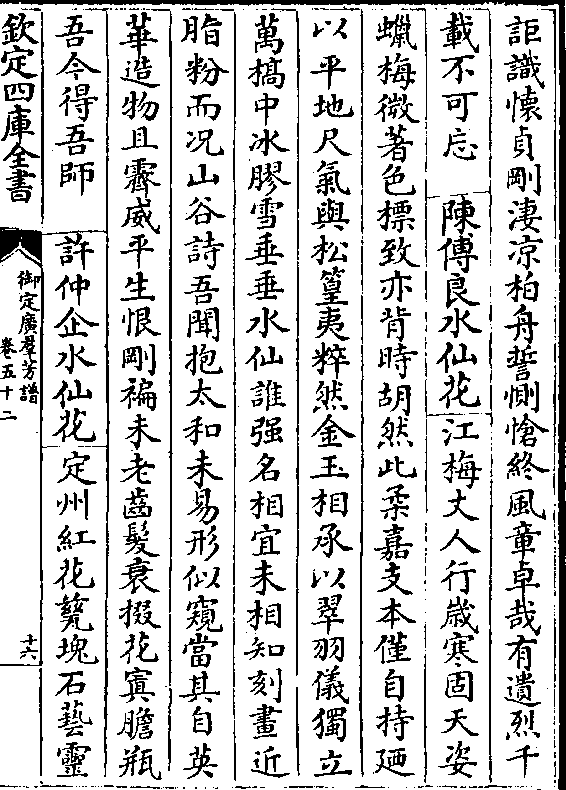 詎識懐貞剛淒凉柏舟誓惻愴終風章卓哉有遺烈千
載不可忘　陳傅良水仙花　江梅丈人行嵗寒固天姿
蠟梅微著色標致亦背時胡然此柔嘉支本僅自持廼
以平地尺氣與松篁夷粹然金玉相承以翠羽儀獨立
萬槁中冰膠雪垂垂水仙誰强名相宜未相知刻畫近
脂粉而况山谷詩吾聞抱太和未易形似窺當其自英
華造物且霽威平生恨剛褊未老齒髮衰掇花寘膽瓶
吾今得吾師　許仲企水仙花　定州紅花甆塊石藝靈
欽定四庫全書
御定廣羣芳譜
卷五十二
十六